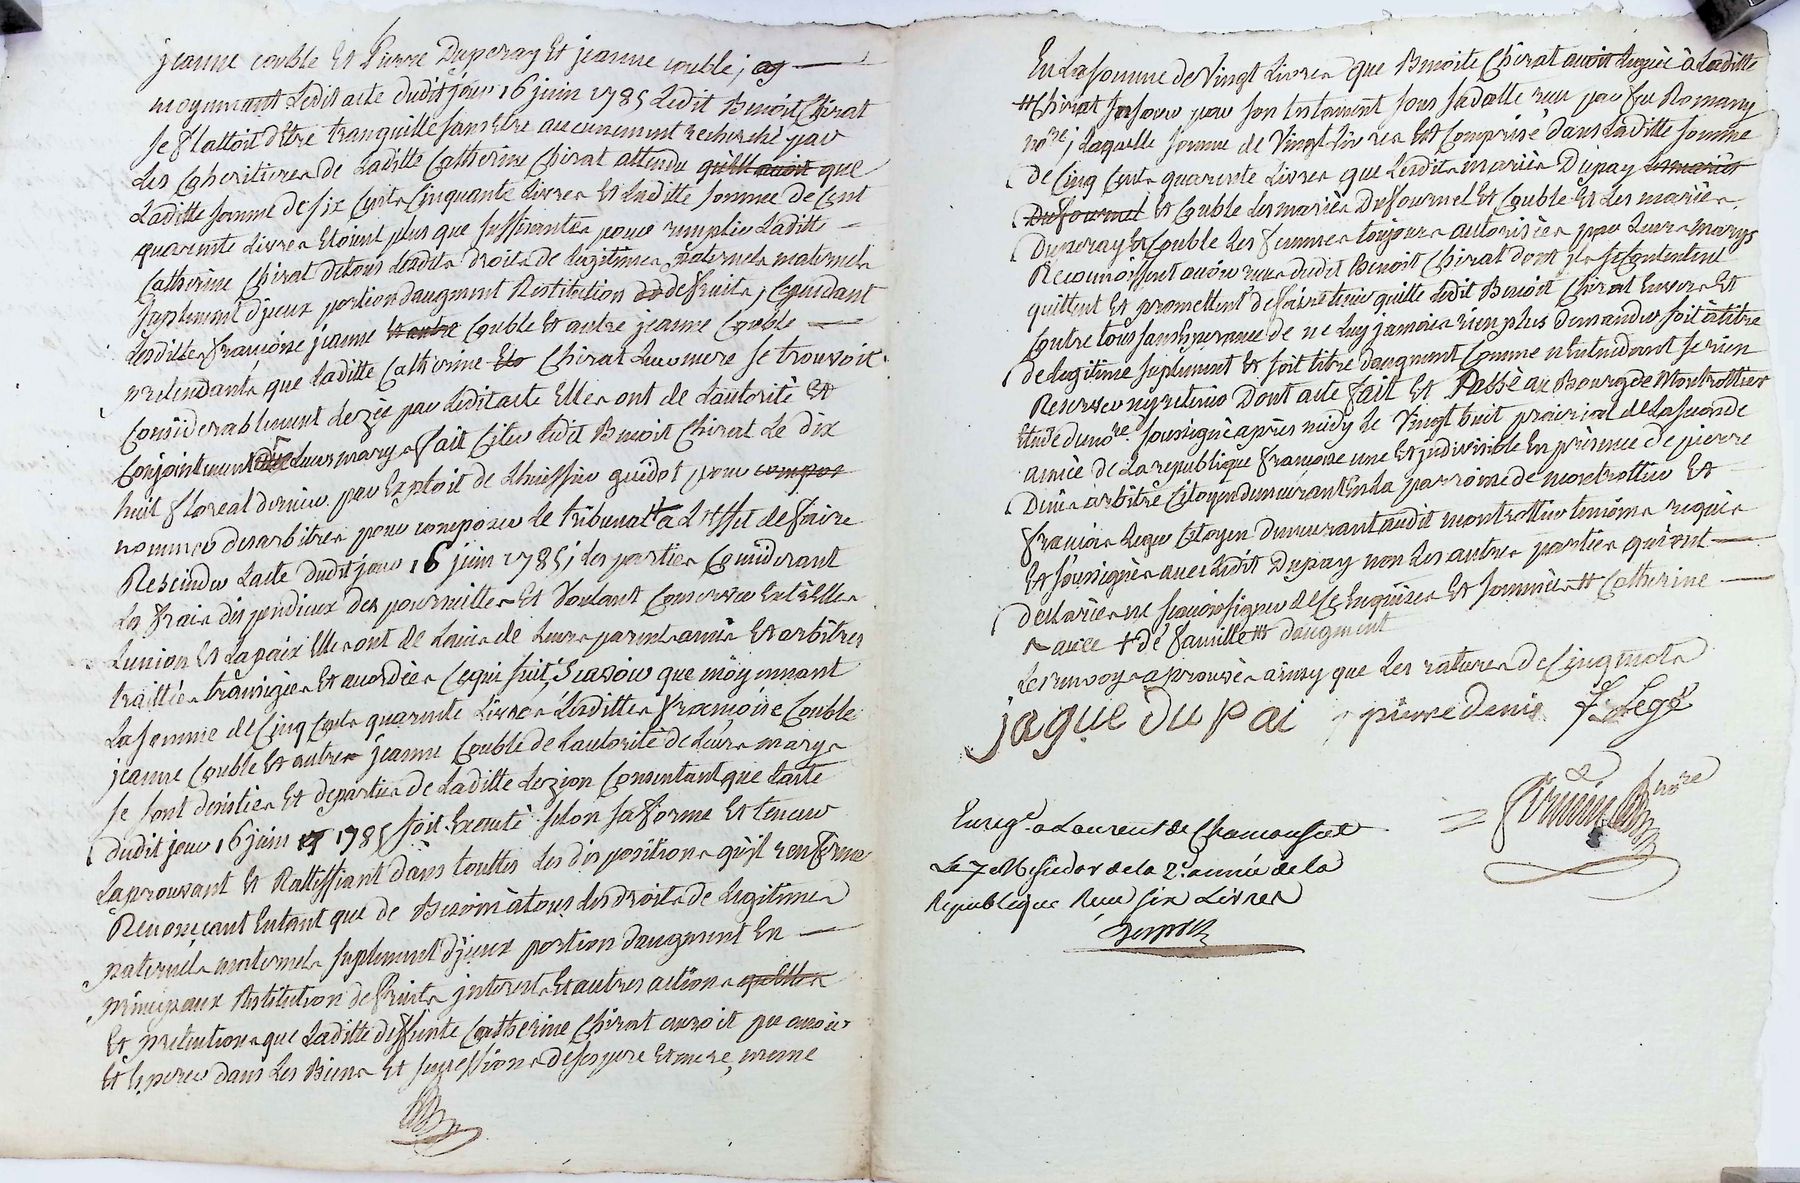 jeanne couble Et Pierre Duperay Et jeanne couble;
moyennant Ledit acte dudit jour 16 juin 1785 Ledit Benoit Chirat
Se flattoit dEtre tranquille sans Etre aucunement recherché par
Les Coheritiers de Laditte Catherine Chirat attendu qu'elle avoit que
Laditte somme de six Cents Cinquante Livres Et Laditte somme de Cent
quarente Livres Etoient plus que suffisantes pour remplir Laditte
Catherine Chirat de tous lesdits droits de Legitimes paternels maternels
suplement d'jceux portion daugment Restitution de fruits, Cependant
Lesdittes francoise jeanne Et autre Couble Et autre jeanne Couble
pretendants que laditte Catherine Chirat Leur mere se trouvoit
Considerablement Lezée par Ledit acte Elles ont de Lautorité Et
Conjointement Leurs marys fait Citer Ledit Benoit Chirat Le dix
huit floreal dernier par Exploit de Lhuissier guidot, pour compos
nommer des arbitres pour composer le tribunal # a L'Effet de faire
Rescinder Lacte dudit jour 16 juin 1785; Les parties Considerant
Les frais dispendieux des poursuittes Et Voulant Conserver Entr'Elles
Lunion Et La paix Elles ont de Lavis de Leurs parents amis Et arbitres
traittées transigées Et acordées Ce qui suit, Scavoir que moyennant
La somme de Cinq Cents quarente Livres Lesdittes francoise Couble
jeanne Couble Et autre jeanne Couble de Lautorité de Leurs marys
se sont desistées Et departies de Laditte Lezion Consentant que Lacte
dudit jour 16 juin 1785 soit Executé selon sa forme Et teneur
Laprouvant Et Rattiffiant dans touttes Les dispositions qu'il renferme
Renoncant Entant que de Besoin a tous Les droits de Legitimes
paternels maternels suplement d'jceux portion daugment En
principaux Restitution de fruits jnterests Et autres actions quelles
Et pretentions que Laditte deffunte Catherine Chirat auroit pu avoir
Et Esperer dans Les Biens Et successions de ses pere Et mere, meme
En La somme de Vingt Livres que Benoite Chirat avoit Leguée à Laditte
# Chirat sa soeur par son testament sous sa datte recu par feu Romany
nore; Laquelle somme de Vingt Livres Est Comprise dans Laditte somme
de Cinq Cents quarente Livres que Lesdits mariés Dupay Les mariés
Dufournel Et Couble Les mariés Dufournel Et Couble Et Les mariés
Duperay Et Couble Les femmes toujours autorisées par Leurs marys
Reconnoissent avoir recu dudit Benoit Chirat dont jls se Contentent
quittent Et promettent de faire tenir quitte Ledit Benoit Chirat Envers Et
Contre tous sans Esperance de ne Luy jamais rien plus demander soit à titre
de Legitime suplement Et soit titre daugment Comme n'Entendant se rien
Reserver ny retenir Dont acte fait Et Passé au Bourg de Montrottier
Etude du nore soussigné apres midy Le Vingt huit prairial de La seconde
année de La republique francoise une Et jndivisible En presence de pierre
Denis arbitre Citoyen demeurant En La parroisse de montrottier Et
francois Legé Citoyen demeurant audit montrottier temoins requis
Et soussignés avec Ledit Dupay non Les autres parties qui ont
declarées ne scavoir signer de Ce Enquises Et sommées # Catherine
avec + de famille ## daugment
Les renvoys aprouvés ainsy que Les ratures de Cinq mots
jaque Du pai pierre denis f Legé
nore
Enregé a Laurent de Chamousset
Le 7 Messidor de la 2e année de la
Republique Recu six Livres